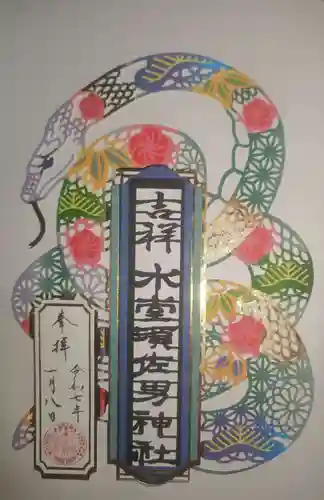 吉祥
水堂須佐男神社
奉拝
令和七年
一月八日